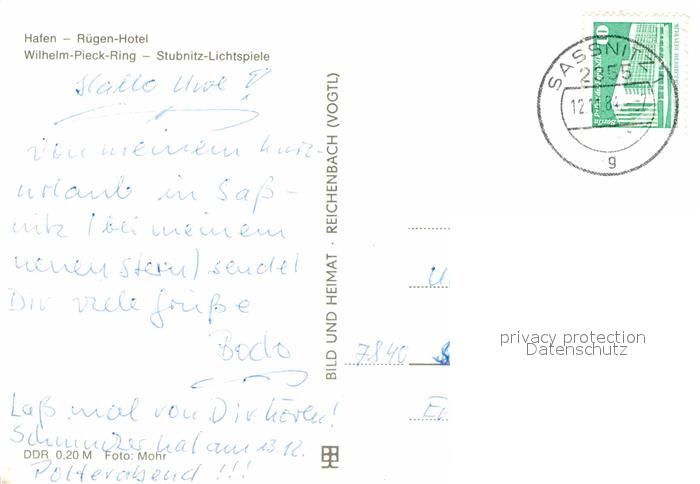 Hafen – Rügen-Hotel
Wilhelm-Pieck-Ring – Stubnitz-Lichtspiele
Hallo Uwe!
Von meinem Kurz-
urlaub in Saß-
nitz (bei meinem
neuen Stern) sendet
Dir viele Grüße
Bodo
Laß mal von Dir hören!
Schmutzer hat am 13.12.
Polterabend!!!
DDR 0,20 M Foto: Mohr
BILD UND HEIMAT · REICHENBACH (VOGTL)
SASSNITZ
2355
g
10
7840
privacy protection
Datenschutz